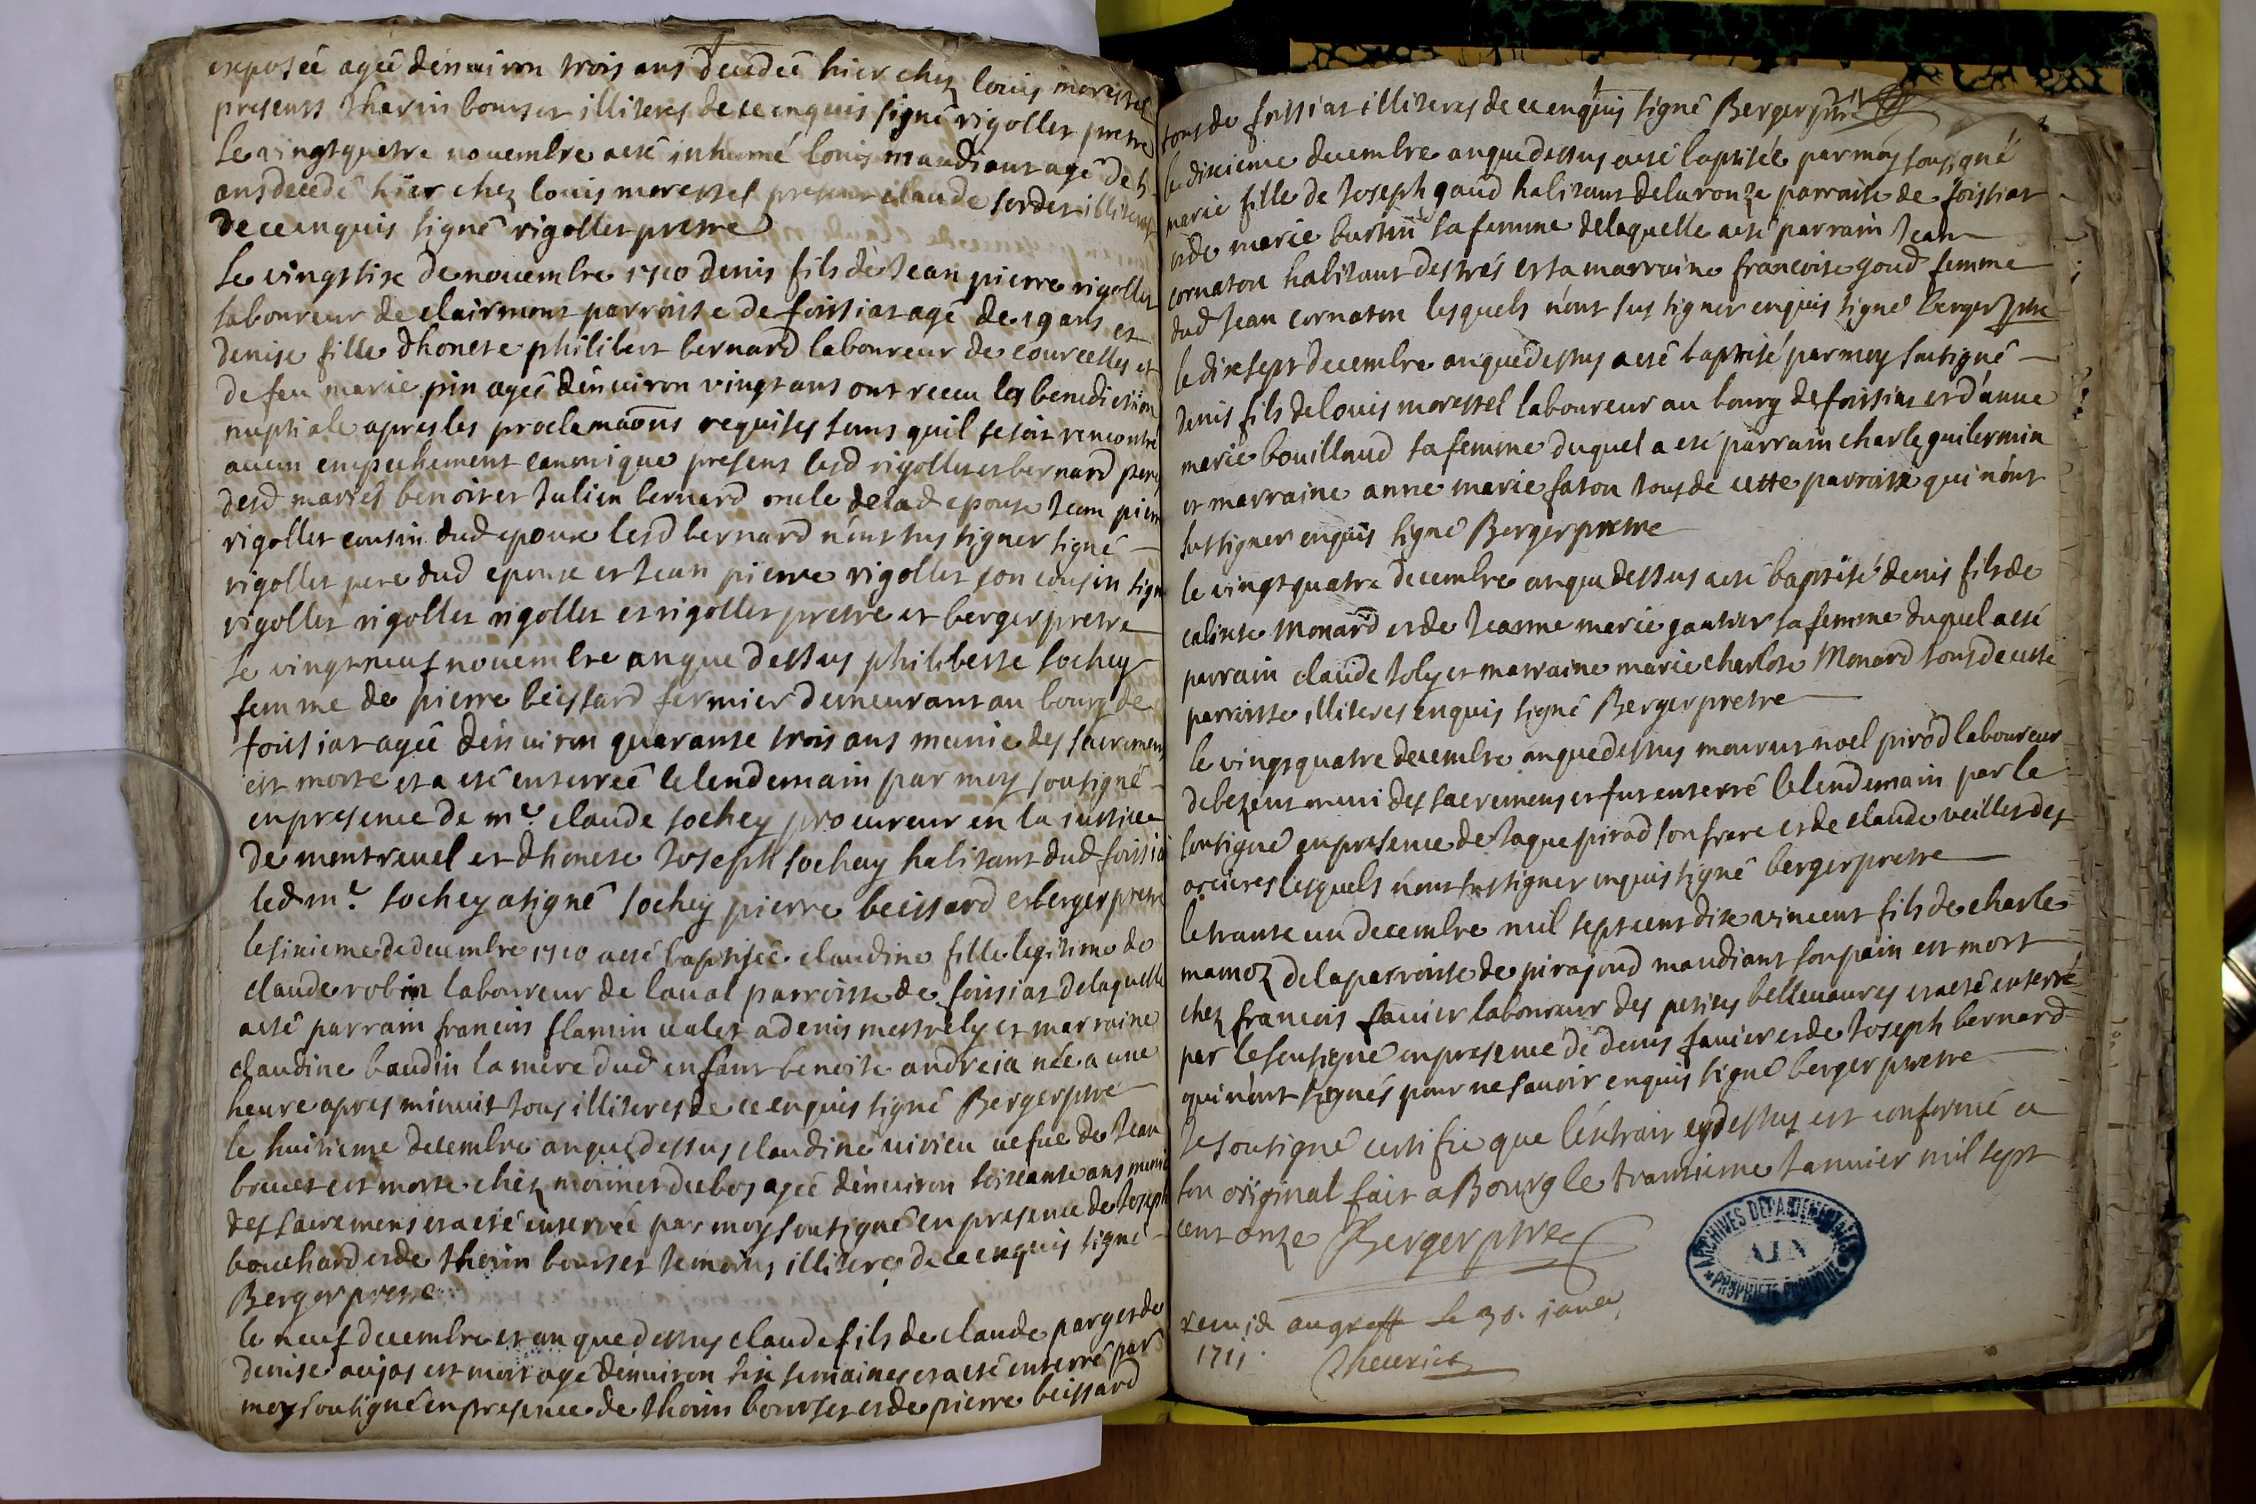 exposée agée denuiron trois ans decedeé hier chez louis morestel
presents Thevin bourset illiteres de ce enquis signé rigollet prestre
Le vingtquatre nouembre a esté inhumé louis mandiant agé de
ans decedé hier chez louis morestel present claude sordet illiteres
de ce enquis signé rigollet prestre
Le vingt sixe de nouembre 1710 denis fils de Jean pierre rigollet
laboureur de clairmont parroisse de foissiat agé de 19 ans et
denise fille dhoneste philibert bernard laboureur de courcelles et
de feu marie pin ageé denuiron vingt ans ont receu la benediction
nuptiale apres les proclemaõns requises sans quil se soit rencontré
aucun empechement canonique present lesd rigollet et bernard peres
desd mariés benoist et Julien bernard oncle de lad epouse Jean pierre
rigollet cousin dud epoux lesd bernard n'ont sus signer signé
rigollet pere dud epoux et Jean pierre rigollet son cousin signé
rigollet rigollet rigollet et rigollet prestre et berger prestre
Le vingt neuf nouembre an que dessus philiberte sochey
femme de pierre beissard fermier demeurant au bourg de
foissiat ageé denuiron quarante trois ans munie des sacremens
est morte et a esté enterreé le lendemain par moy soutigné
en presence de mr. claude sochey procureur en la justice
de montreuel et dhoneste Joseph sochey habitant dud foissia
led mr. sochey a signé sochey pierre beissard et berger prestre
le sixieme de decembre 1710 a esté baptiseé claudine fille legitime de
claude robin laboureur de laual parroisse de foissiat delaquelle
a esté parrain francois flamin ualet a denis mestrely et marraine
claudine baudin la mere dud enfant benoiste andreia née a une
heure apres minuit tous illiteres de ce enquis signé Berger ptre
le huitieme decembre an que dessus claudine uiuieu uefue de Jean
bouuet est morte chez moinet dubos ageé denuiron soixante ans munie
des sacremens et a esté enterreé par moy soutigné en presence de Joseph
bouchard et de thevin bourset temoins illiteres de ce enquis signé
Berger prestre
le neuf decembre et an que dessus claude fils de claude parget et de
denise aujas est mort agé denuiron six semaines et a esté enterré par
moy soutigné en presence de thevin bourset et de pierre beissard
tous de foissiat illiteres de ce enquis signé Berger ptre
le dixieme decembre an que dessus a esté baptisée par moy soutigné
marie fille de Joseph gaud habitant de la ronze parroisse de foissiat
et de marie burtin sa femme delaquelle a esté parrain Jean
cornaton habitant des trés et sa marraine francoise goud femme
dud Jean cornaton lesquels n'ont sus signer enquis signé berger ptre
le dixsept decembre an que dessus a esté baptisé par moy soutigné
denis fils de louis morestel laboureur au bourg de foissiat et d'anne
marie bouillaud sa femme duquel a esté parrain charle guilermin
et marraine anne marie faton tous de cette parroisse qui n'ont
sus signer enquis signé Berger prestre
le vingt quatre decembre an que dessus a esté baptisé denis fils de
calinte Monard et de Jeanne marie gautier sa femme duquel a esté
parrain claude Joly et marraine marie charlote Monard tous de cette
parroisse illiteres enquis signé Berger prestre
le vingt quatre decembre an que dessus mourut noel pirod laboureur
de bezent muni des sacremens et fut enterré le lendemain par le
soutigné en presence de Jaque pirod son frere et de claude veillet des
orcieres lesquels n'ont sus signer enquis signé berger prestre
le trante un decembre mil sept cent dix vincent fils de charle
mamoz de la parroisse de pirajoud mandiant son pain est mort
chez francois fauier laboureur des petites belleuaures et a esté enterré
par le soutigné en presence de denis fauier et de Joseph bernard
qui n'ont signés pour ne sauoir enquis signé berger prestre
Je soutigné certifie que l'extrait cy dessus est conforme a
son original fait a Bourg le trantieme Januier mil sept
cent onze Berger ptre
ARCHIVES DEPARTEMENTALES
AIN
PROPRIETE PUBLIQUE
remis au greffe le 30. janer
1711.